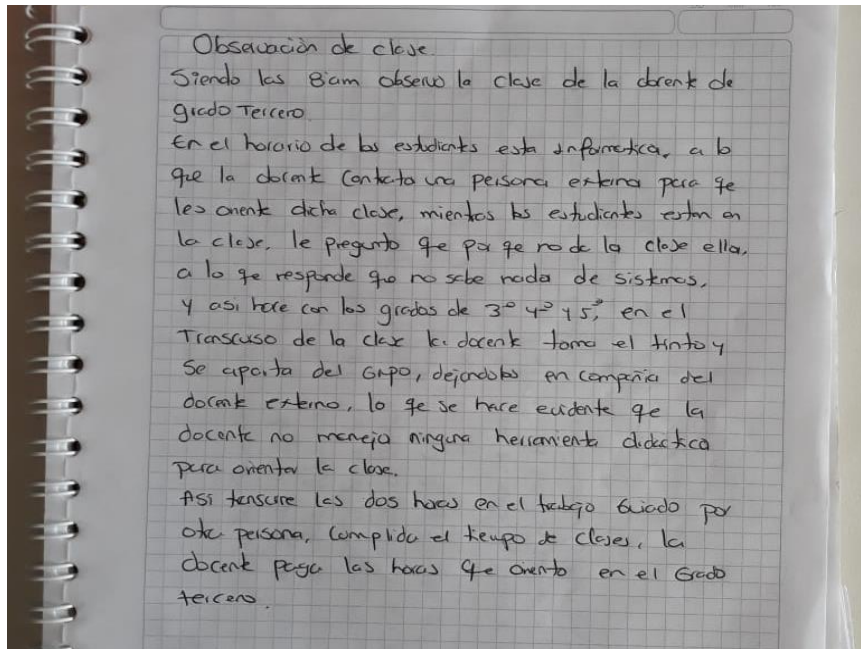 Observación de clase.
Siendo las 8:am observo la clase de la docente de
grado Tercero.
En el horario de los estudiantes esta informatica, a lo
que la docente contacta una persona externa para qe
les oriente dicha clase, mientras los estudiantes estan en
la clase, le pregunto qe por qe no da la clase ella,
a lo qe responde que no sabe nada de sistemas,
y asi hace con los grados de 3° 4° y 5°, en el
Transcurso de la clase la docente toma el tinto y
se aparta del Grupo, dejandolos en compañia del
docente externo, lo qe se hace evidente qe la
docente no maneja ninguna herramienta didactica
para orientar la clase.
Asi transcurre las dos horas en el trabajo Guiado por
otra persona, cumplida el tiempo de clases, la
docente paga las horas qe oriento en el Grado
tercero.